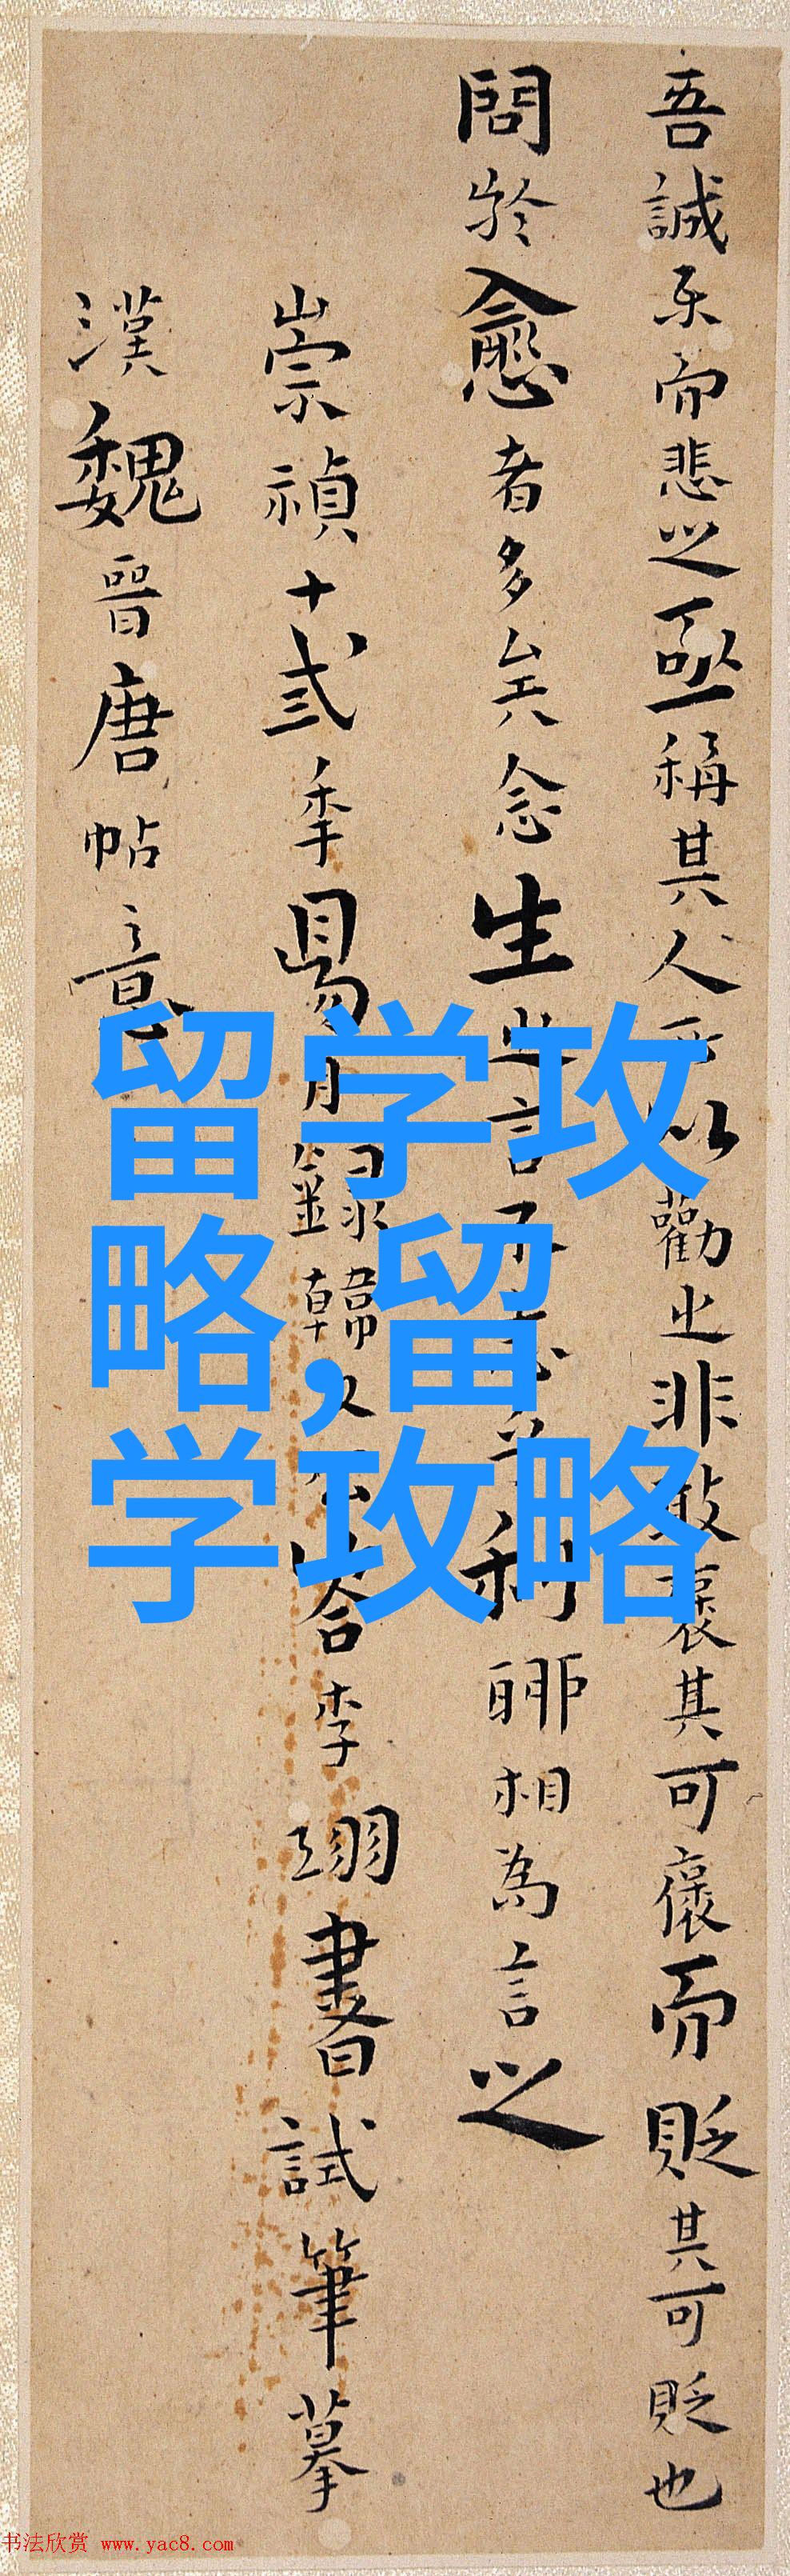 吾誠樂而悲之亟稱其人所以勸之非敢褒其可褒而貶其可貶也
問於愈者多矣念生之言不志乎利聊相為言之
崇禎十季月錄韓文公答李翊書試筆摹
漢魏晉唐帖意
留学攻
略,留
学攻略
书法欣赏 www.yac8.com